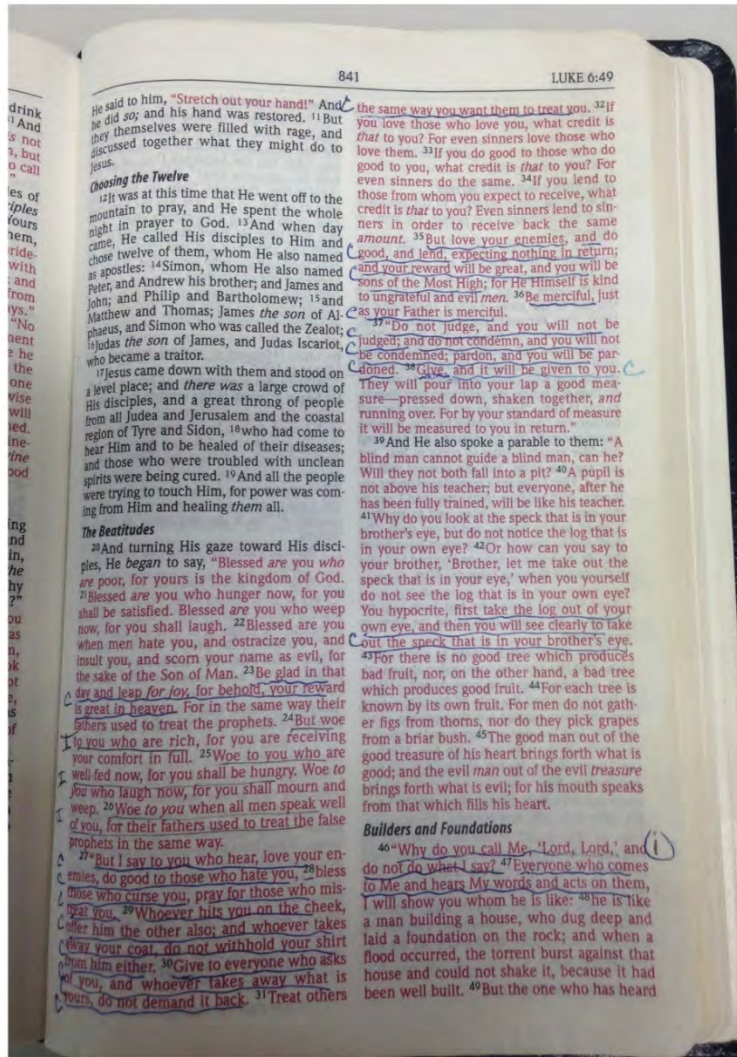 841
LUKE 6:49
drink
11 And
s not
n, but
o call
es of
ciples
Yours
hem,
pride-
with
; and
from
ys."
"No
ment
e he
the
one
wise
will
ned.
ine-
vine
ood
ing
nd
in,
he
hy
?"
ou
as
n,
ok
ot
e,
is
of
He said to him, "Stretch out your hand!" And
he did so; and his hand was restored. 11But
they themselves were filled with rage, and
discussed together what they might do to
Jesus.
Choosing the Twelve
12It was at this time that He went off to the
mountain to pray, and He spent the whole
night in prayer to God. 13And when day
came, He called His disciples to Him and
chose twelve of them, whom He also named
as apostles: 14Simon, whom He also named
Peter, and Andrew his brother; and James and
John; and Philip and Bartholomew; 15and
Matthew and Thomas; James the son of Al-
phaeus, and Simon who was called the Zealot;
16Judas the son of James, and Judas Iscariot,
who became a traitor.
17Jesus came down with them and stood on
a level place; and there was a large crowd of
His disciples, and a great throng of people
from all Judea and Jerusalem and the coastal
region of Tyre and Sidon, 18who had come to
hear Him and to be healed of their diseases;
and those who were troubled with unclean
spirits were being cured. 19And all the people
were trying to touch Him, for power was com-
ing from Him and healing them all.
The Beatitudes
20And turning His gaze toward His disci-
ples, He began to say, "Blessed are you who
are poor, for yours is the kingdom of God.
21Blessed are you who hunger now, for you
shall be satisfied. Blessed are you who weep
now, for you shall laugh. 22Blessed are you
when men hate you, and ostracize you, and
insult you, and scorn your name as evil, for
the sake of the Son of Man. 23Be glad in that
day and leap for joy, for behold, your reward
is great in heaven. For in the same way their
fathers used to treat the prophets. 24But woe
to you who are rich, for you are receiving
your comfort in full. 25Woe to you who are
well-fed now, for you shall be hungry. Woe to
you who laugh now, for you shall mourn and
weep. 26Woe to you when all men speak well
of you, for their fathers used to treat the false
prophets in the same way.
27"But I say to you who hear, love your en-
emies, do good to those who hate you, 28bless
those who curse you, pray for those who mis-
treat you. 29Whoever hits you on the cheek,
offer him the other also; and whoever takes
away your coat, do not withhold your shirt
from him either. 30Give to everyone who asks
of you, and whoever takes away what is
yours, do not demand it back. 31Treat others
the same way you want them to treat you. 32If
you love those who love you, what credit is
that to you? For even sinners love those who
love them. 33If you do good to those who do
good to you, what credit is that to you? For
even sinners do the same. 34If you lend to
those from whom you expect to receive, what
credit is that to you? Even sinners lend to sin-
ners in order to receive back the same
amount. 35But love your enemies, and do
good, and lend, expecting nothing in return;
and your reward will be great, and you will be
sons of the Most High; for He Himself is kind
to ungrateful and evil men. 36Be merciful, just
as your Father is merciful.
37"Do not judge, and you will not be
judged; and do not condemn, and you will not
be condemned; pardon, and you will be par-
doned. 38Give, and it will be given to you.
They will pour into your lap a good mea-
sure—pressed down, shaken together, and
running over. For by your standard of measure
it will be measured to you in return."
39And He also spoke a parable to them: "A
blind man cannot guide a blind man, can he?
Will they not both fall into a pit? 40A pupil is
not above his teacher; but everyone, after he
has been fully trained, will be like his teacher.
41Why do you look at the speck that is in your
brother's eye, but do not notice the log that is
in your own eye? 42Or how can you say to
your brother, 'Brother, let me take out the
speck that is in your eye,' when you yourself
do not see the log that is in your own eye?
You hypocrite, first take the log out of your
own eye, and then you will see clearly to take
out the speck that is in your brother's eye.
43For there is no good tree which produces
bad fruit, nor, on the other hand, a bad tree
which produces good fruit. 44For each tree is
known by its own fruit. For men do not gath-
er figs from thorns, nor do they pick grapes
from a briar bush. 45The good man out of the
good treasure of his heart brings forth what is
good; and the evil man out of the evil treasure
brings forth what is evil; for his mouth speaks
from that which fills his heart.
Builders and Foundations
46"Why do you call Me, 'Lord, Lord,' and i
do not do what I say? 47Everyone who comes
to Me and hears My words and acts on them,
I will show you whom he is like: 48he is like
a man building a house, who dug deep and
laid a foundation on the rock; and when a
flood occurred, the torrent burst against that
house and could not shake it, because it had
been well built. 49But the one who has heard